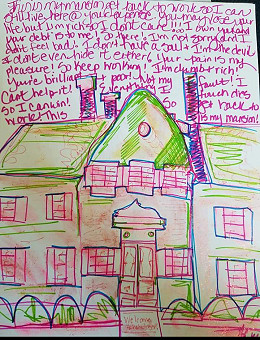 This is my mansion get back to work so I can
still live here @ your expense. You may lose your
life but I'm rich so I don't care !!! I own you and
your debt is to me! So there! I'm not sorry and I
don't feel bad! I don't have a soul & I'm the devil
& don't even hide it either! Your pain is my
pleasure! So keep working! I'm dumb & rich!
You're brilliant & poor! Not my fault! I
Can't help it! Everything I touch dies
So I can win! So get back to
work! This is my mansion!
Welcome